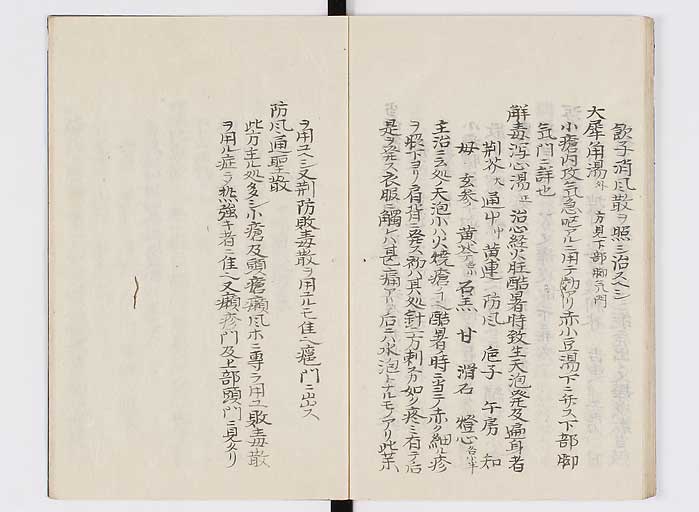 飲子消風散ヲ照シ治スヘシ
大犀角湯 外 方見下部脚気門
小瘡内攻気急
赤小豆湯下ニ弁ス下部脚
気門ニ詳也
解毒瀉心湯 正 治心経火旺酷暑時致生天泡発及遍身者
荆芥大 通中 黄連 防風 梔子 牛房 知
母 玄参 黄芩 石羔 甘 滑石 燈心
主治ニ云処ノ天泡小ハ火焼瘡 酷暑ノ時ニ当テ赤ク細ル疹
ヲ 肩背ニ発ス初ハ其処針ニテ刺スカ如ク疼ミ有テ后
是ヲ発ス衣服ニ触レハ甚痛アリ后ニハ水泡トナルモノアリ此薬
ヲ用ユヘシ又荆防敗毒散ヲ用ルモ佳 門ニ出ス
防風通聖散
此方主ル処多シ小瘡及頭瘡癩風ホニ専ラ用ユ敗毒散
ヲ用ル症ヨリ熱強キ者ニ佳 又癩疹門及上部頭門ニ見タリ